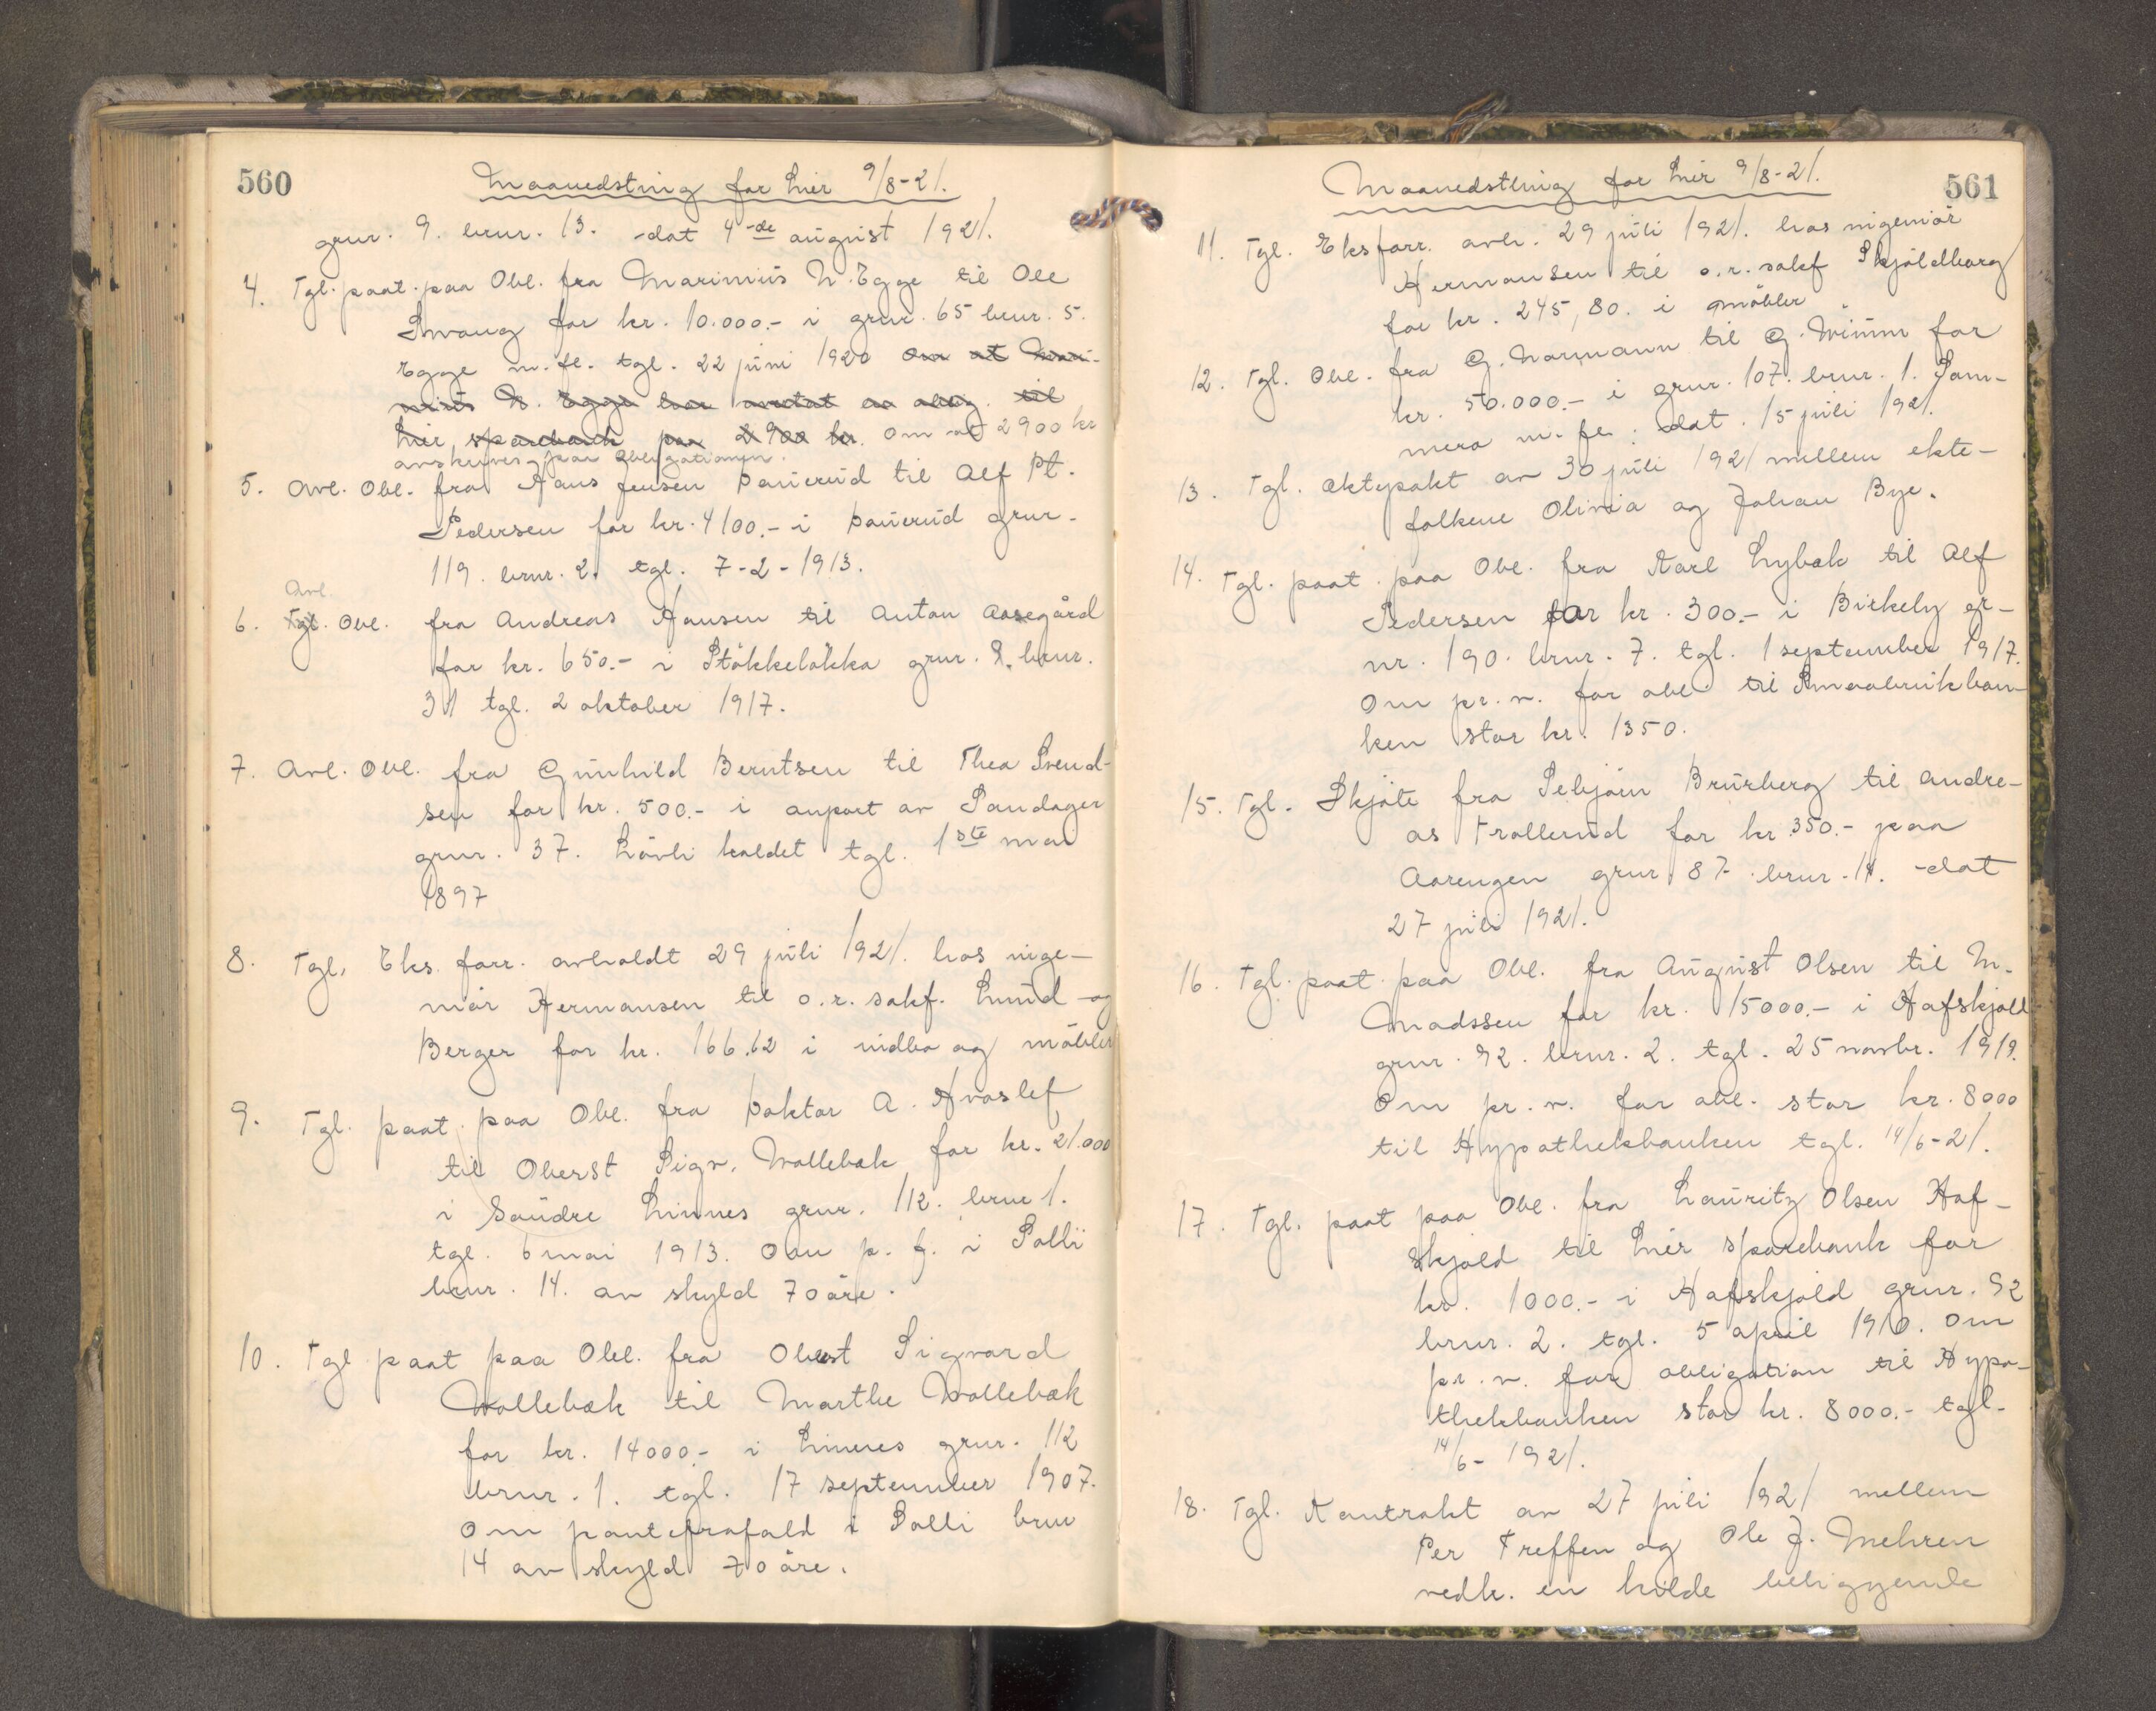 560
Maanedsting for Lier 9/8-21.
gnr. 9. bnr. 13. -dat 4-de august 1921.
4. Tgl. paat. paa Obl. fra Marinius N. Egge til Ole
Svang for kr. 10.000.- i gnr. 65 bnr. 5.
Egge m. fl. tgl. 22 juni 1920 om at Mari-
nius N. Egge har avstat av til
Lier sparebank paa 2900 kr. om at 2900 kr
avskrives paa obligationen.
5. Avl. Obl. fra Hans Jensen Dauerud til Alf Pt.
Pedersen for kr. 4100.- i Dauerud gnr.
119. bnr. 2. tgl. 7-2-1913.
Avl.
6. Tgl. Obl. fra Andreas Hansen til Anton Aasegård
for kr. 650.- i Stökkelökka gnr. 8. bnr.
31 tgl. 2 oktober 1917.
7. Avl. Obl. fra Gunhild Berntsen til Thea Svend-
sen for kr. 500.- i anpart av Sandager
gnr. 37. Lövli kaldet tgl. 1ste mai
1897
8. Tgl. Eks. forr. avholdt 29 juli 1921. hos inge-
niör Hermansen til o.r. sakf. Lund og
Berger for kr. 166.62 i indbo og möbler
9. Tgl. paat. paa Obl. fra Doktor A. Hvoslef
til Oberst Sigv. Wollebæk for kr. 21.000
i Söndre Linnes gnr. 112. bnr 1.
tgl. 6 mai 1913. Om p. f. i Solli
bnr. 14. av skyld 70 öre.
10. Tgl paat paa Obl. fra Oberst Sigvard
Wollebæk til Marthe Wollebæk
for kr. 14000.- i Linnes gnr. 112
bnr. 1. tgl. 17 september 1907.
Om pantefrafald i Solli bnr
14 av skyld 70 öre.
561
Maanedsthing for Lier 9/8-21.
11. Tgl. Eksforr. avh. 29 juli 1921. hos ingeniör
Hermansen til o.r. sakf Skjöldborg
for kr. 245,80. i möbler.
12. Tgl. Obl. fra G. Narmann til G. Wium for
kr. 50.000.- i gnr. 107. bnr. 1. Sam-
mera m. fl. dat. 15 juli 1921.
13. Tgl. Ektepakt av 30 juli 1921 mellem ekte-
folkene Olivia og Johan Bye.
14. Tgl. paat. paa Obl. fra Karl Lybæk til Alf
Pedersen for kr. 300.- i Birkely gr-
nr. 190. bnr. 7. tgl. 1 september 1917.
Om pr. v. for obl. til Smaabrukban-
ken stor kr. 1350.
15. Tgl. Skjöte fra Sebjörn Brurberg til Andre-
as Trollerud for kr. 350.- paa
Aarengen gnr. 87. bnr. 14. -dat
27 juli 1921.
16. Tgl. paat. paa Obl. fra August Olsen til M.
Madssen for kr. 15000.- i Hafskjold
gnr. 92. bnr. 2. tgl. 25 novbr. 1919.
Om pr. v. for obl. stor kr. 8000
til Hypothekbanken tgl. 14/6-21.
17. Tgl. paat paa Obl. fra Lauritz Olsen Haf-
skjold til Lier sparebank for
kr. 1000.- i Hafskjold gnr. 92
bnr. 2. tgl. 5 april 1910. Om
pr. v. for obligation til Hypo-
thekbanken stor kr. 8000.- tgl.
14/6- 1921.
18. Tgl. Kontrakt av 27 juli 1921 mellem
Per Treffen og Ole J. Mehren
vedk. en kilde beliggende